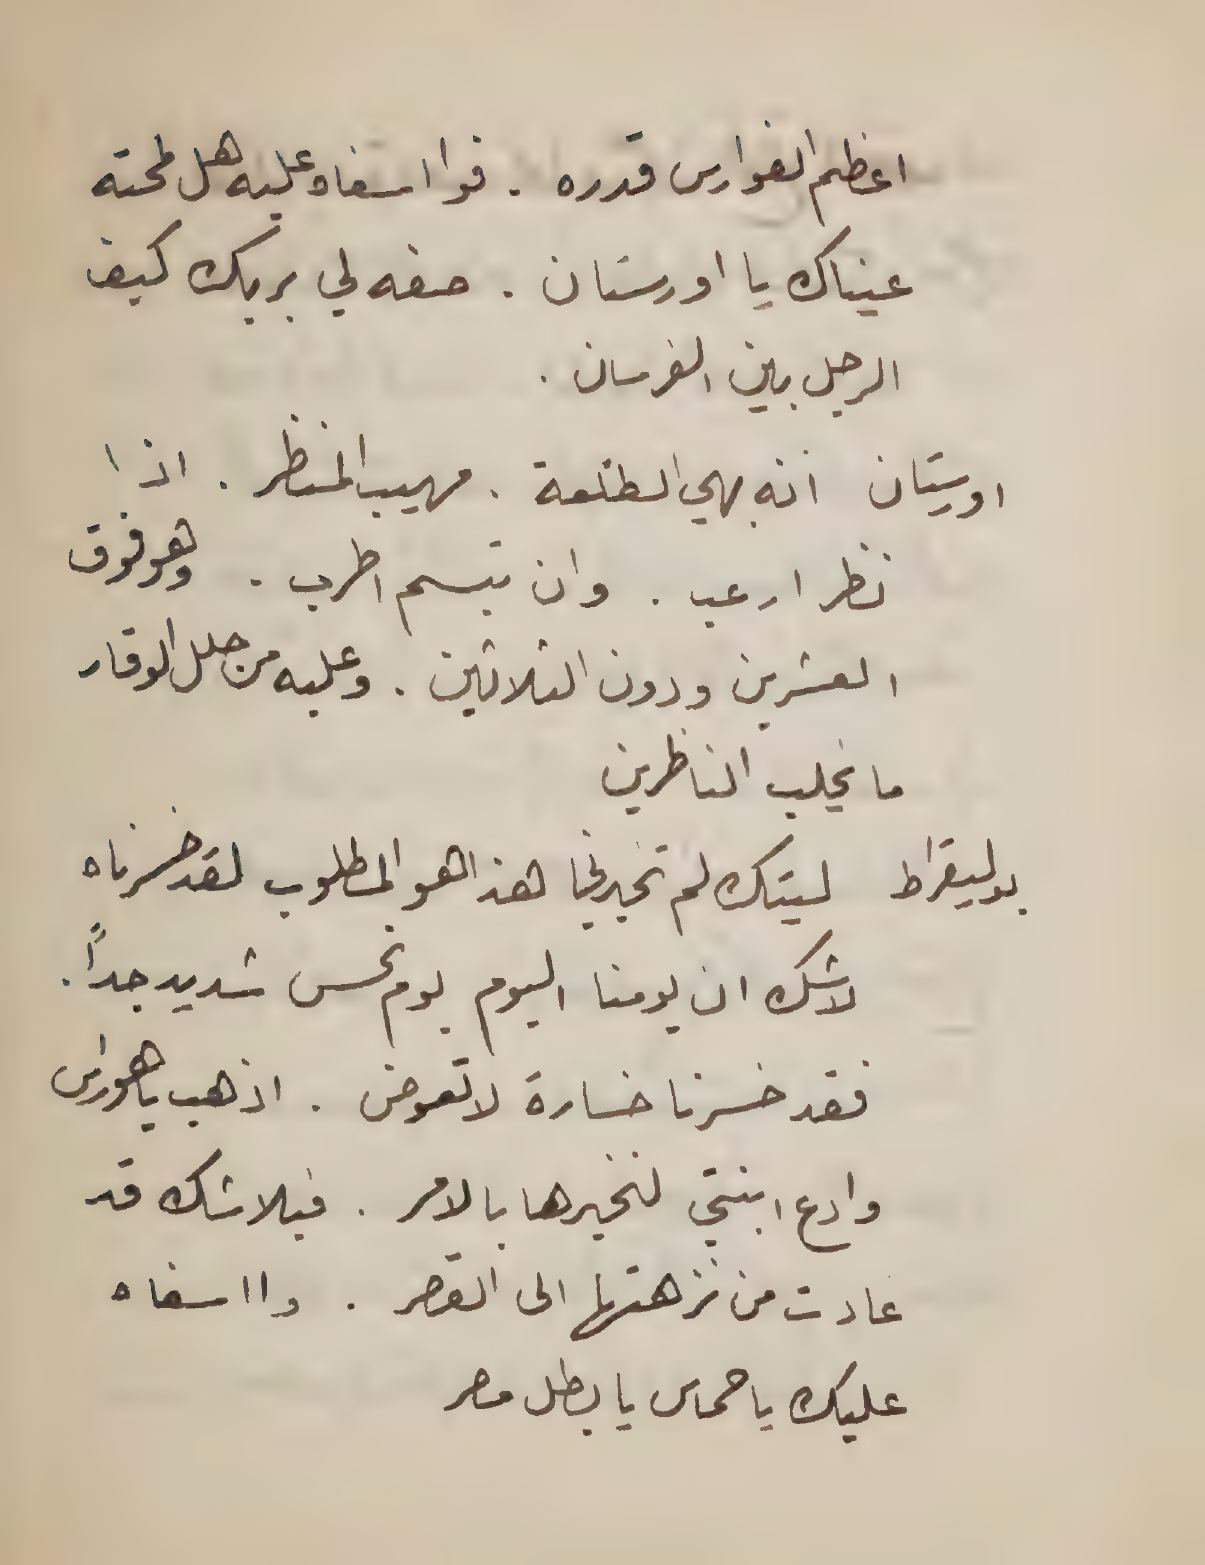 اعظم الفوارس قدره . فوا اسفاه عليه هل لمحته
عيناك يا اورستان . صفه لي بربك كيف
الرجل بين الفرسان .
اورستان انه بهي الطلعة . مهيب المنظر . اذا
نظر ارعب . وان تبسم اطرب . وهو فوق
العشرين ودون الثلاثين . وعليه من حلل الوقار
ما يخلب الناظرين
بوليقراط ليتك لم تخبرني هذا هو المطلوب لقد خسرناه
لاشك ان يومنا اليوم يوم نحس شديد جداً .
فقد خسرنا خسارة لا تعوض . اذهب يا هوراس
وادع ابنتي لنخبرها بالامر . فبلا شك قد
عادت من نزهتها الى القصر . وا اسفاه
عليك يا حماس يا بطل مصر